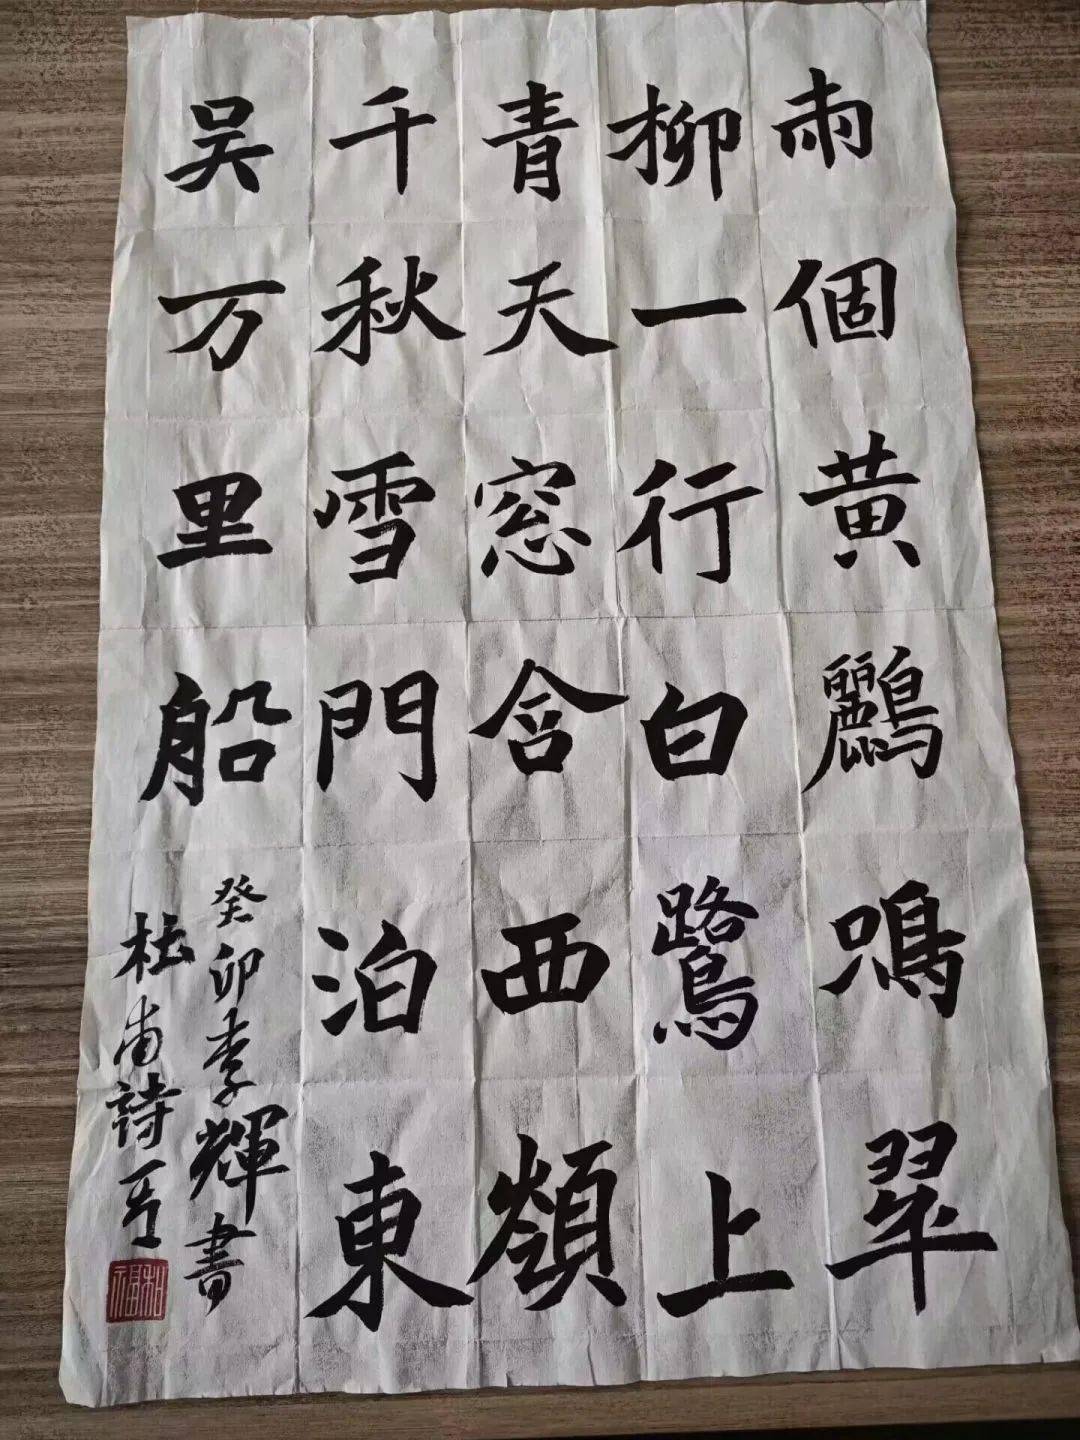 兩個黄鸝鳴翠
柳一行白鷺上
青天窓含西嶺
千秋雪門泊東
吴万里船
癸卯李輝書
杜甫詩一首